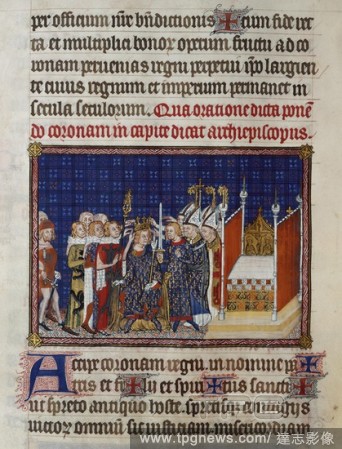 per officium nře bñdictionis cum fide rec
ta et multiplici bonor operum fructu ad co
ronam peruenias regni perpetui ip̃o largien
te cuius regnum et imperium permanet in
secula seculorum. Qua oratione dicta ponen
do coronam in capite dicat archiepiscopus.
Accipe coronam regni in nomine p
atris et filii et spiritus sancti
ut spreto antiquo hoste
uictorum omnium sic iusticiam misericordiam
www.tpgnews.com/ 達志影像